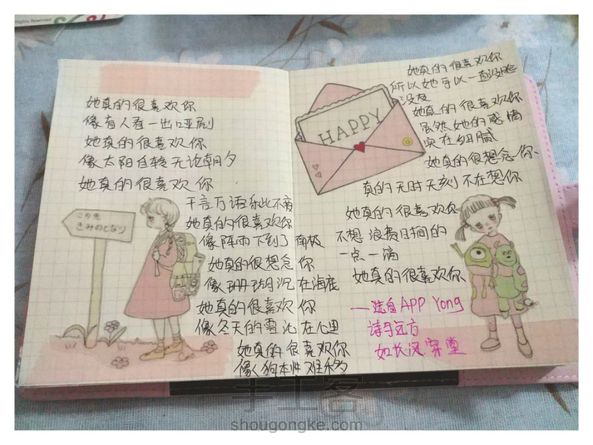 她真的很喜欢你
像有人看一出哑剧
她真的很喜欢你
像太阳自转无论朝夕
她真的很喜欢你
千言万语和此不离
她真的很喜欢你
像阵雨下到了南极
她真的很想念你
像珊瑚沉在海底
她真的很喜欢你
像冬天的雪
她真的很喜欢你
像
この先
きみのとなり
她真的很喜欢你
所以她可以一直
没发
她真的很喜欢你
虽然她的感情
实在细腻
她真的很想念你、
真的无时无刻不在想你
她真的很喜欢你
不想浪费时间的
一点一滴
她真的很喜欢你
——选自APP Yong
诗与远方
如长汉
HAPPY
shougongke.com